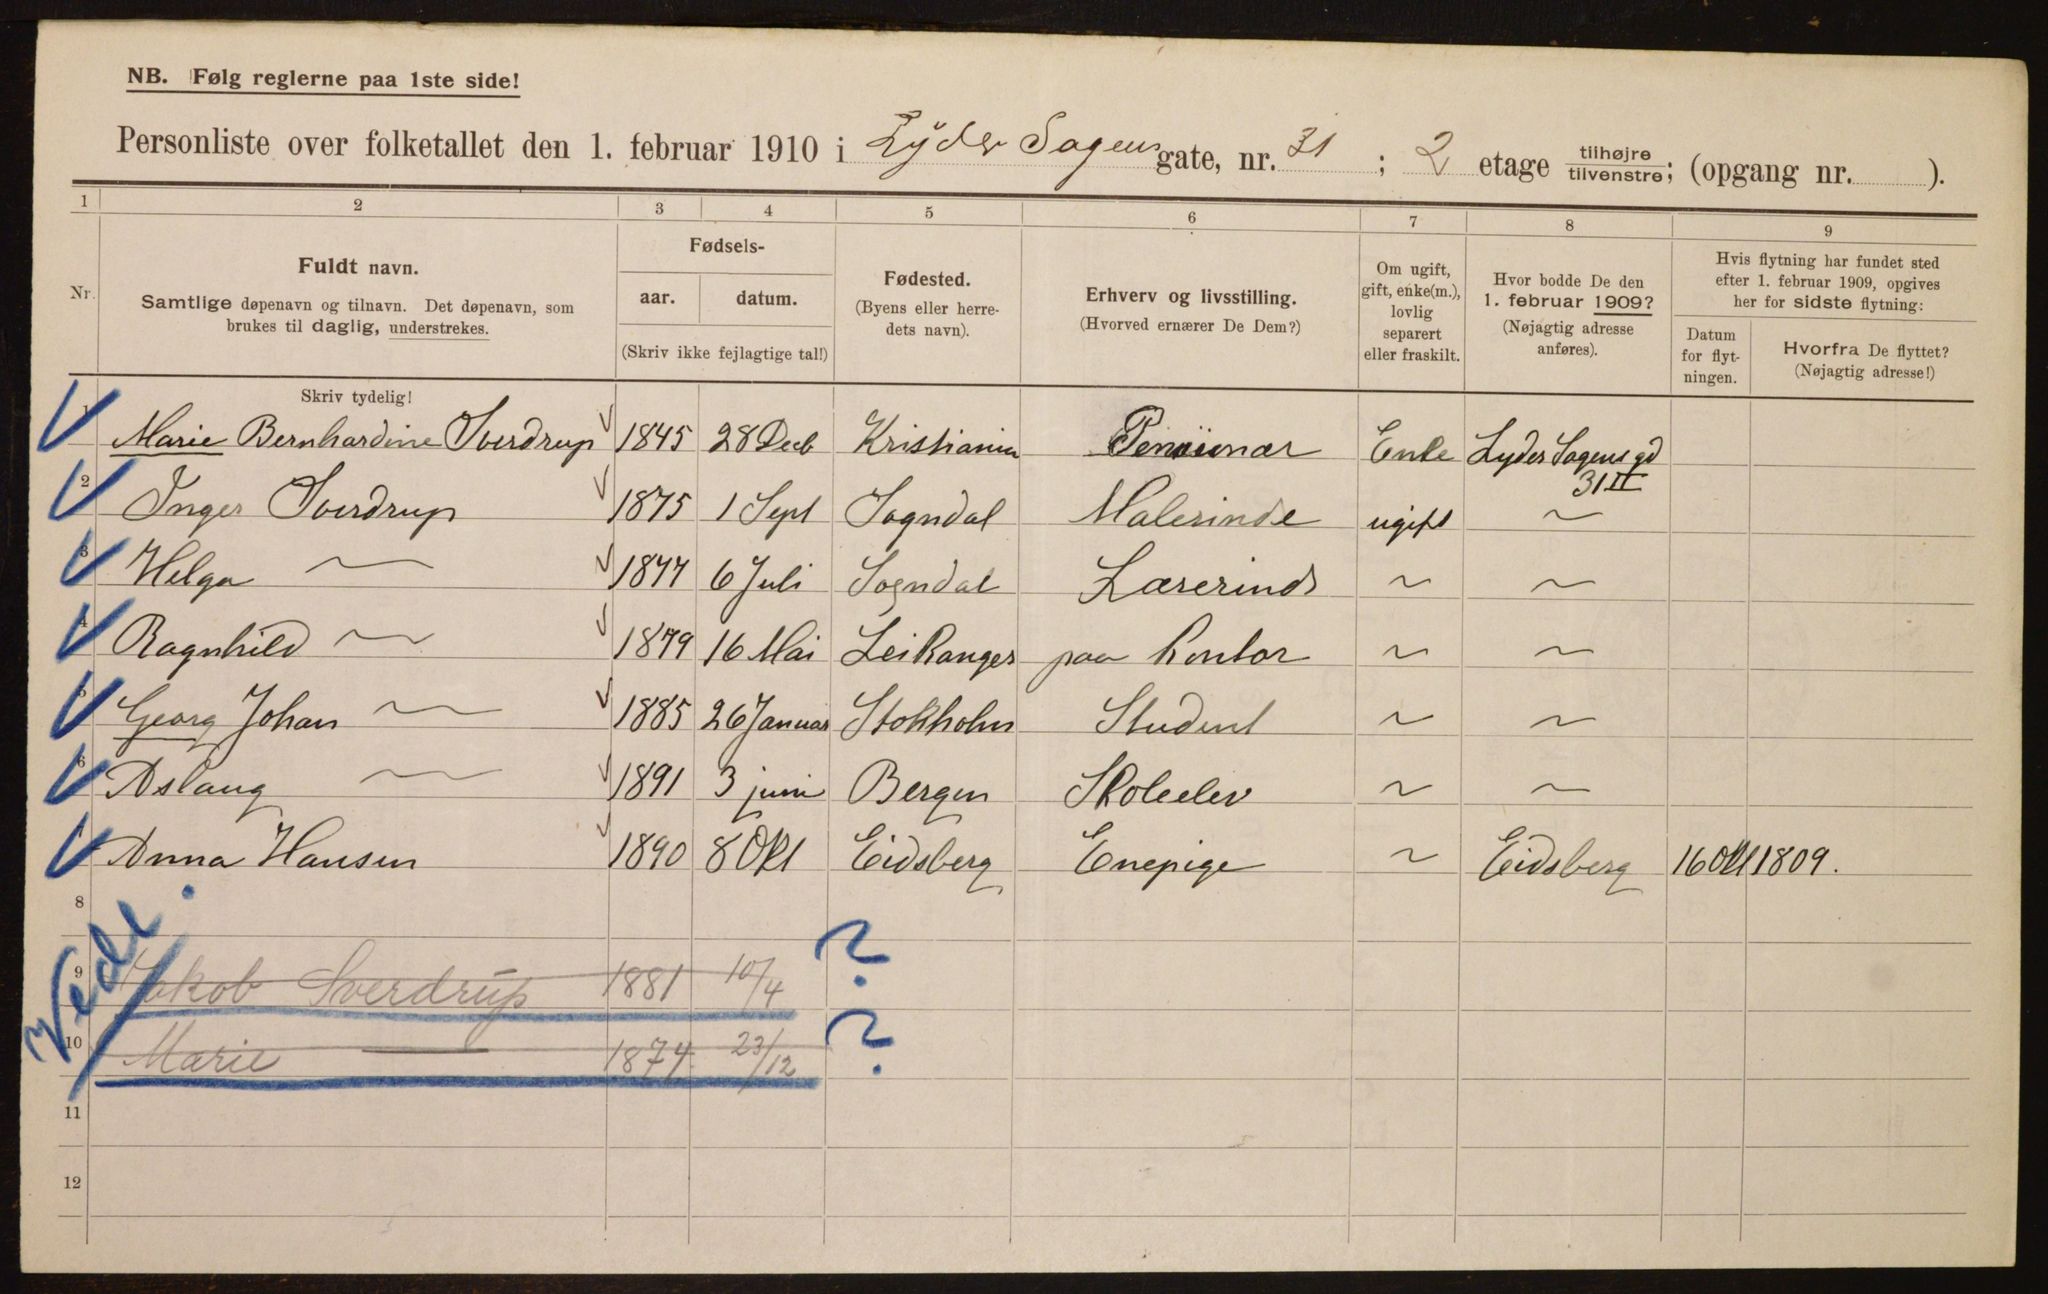 NB. Følg reglerne paa 1ste side!
Personliste over folketallet den 1. februar 1910 i Lyder Sagens gate, nr. 31 ; 2 etage tilhøjre tilvenstre; (opgang nr. ).
1 2 3 4 5 6 7 8 9
Nr. Fuldt navn. Samtlige døpenavn og tilnavn. Det døpenavn, som brukes til daglig, understrekes.
Fødsels- aar. datum. (Skriv ikke fejlagtige tal!)
Fødested. (Byens eller herredets navn).
Erhverv og livsstilling. (Hvorved ernærer De Dem?)
Om ugift, gift, enke(m.), lovlig separert eller fraskilt.
Hvor bodde De den 1. februar 1909? (Nøjagtig adresse anføres).
Hvis flytning har fundet sted efter 1. februar 1909, opgives her for sidste flytning:
Datum for flytningen. Hvorfra De flyttet? (Nøjagtig adresse!)
Skriv tydelig!
1 Marie Bernhardine Sverdrup 1845 28 Decb Kristiania Pensiionær Enke Lyder Sagens gd 31 II
2 Inger Sverdrup 1875 1 Sept Sogndal Malerinde ugift ~
3 Helga ~ 1877 6 Juli Sogndal Lærerinde ~ ~
4 Ragnhild ~ 1879 16 Mai Leikanger paa Kontor ~ ~
5 Georg Johan ~ 1885 26 Januar Stokholm Student ~ ~
6 Aslaug ~ 1891 3 juni Bergen Skoleelev ~ ~
Anna Hansen 1890 8 Okt Eidsberg Enepige ~ Eidsberg 16 Okt 1809.
8
9 Jakob Sverdrup 1881 10/4 ?
10 Marie — 1874 23/12 ?
11
12